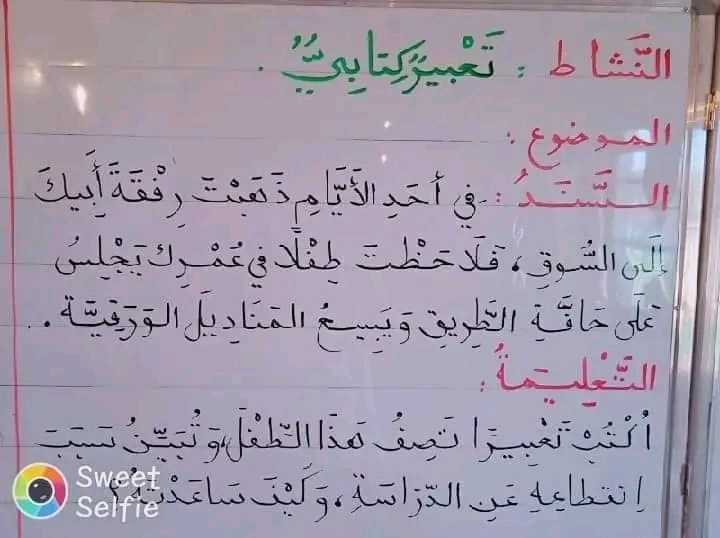 النَّشاط : تَعْبِيرٌ كِتابِيٌّ .
الموضوع :
السَّنَدُ : في أَحَدِ الأَيَّامِ ذَهَبْتَ رِفْقَةَ أَبِيكَ
إِلَى السُّوقِ ، فَلَاحَظْتَ طِفْلًا فِي عُمْرِكَ يَجْلِسُ
عَلَى حَافَّةِ الطَّرِيقِ وَيَبِيعُ المَنَادِيلَ الوَرَقِيَّة .
التَّعْلِيمَةُ :
اُكْتُبْ تَعْبِيرًا تَصِفُ هَذَا الطِّفْلَ، وَتُبَيِّنُ سَبَبَ
اِنقطاعِهِ عَنِ الدِّرَاسَةِ ، وَكَيْفَ سَاعَدْتَهُ ؟
Sweet
Selfie